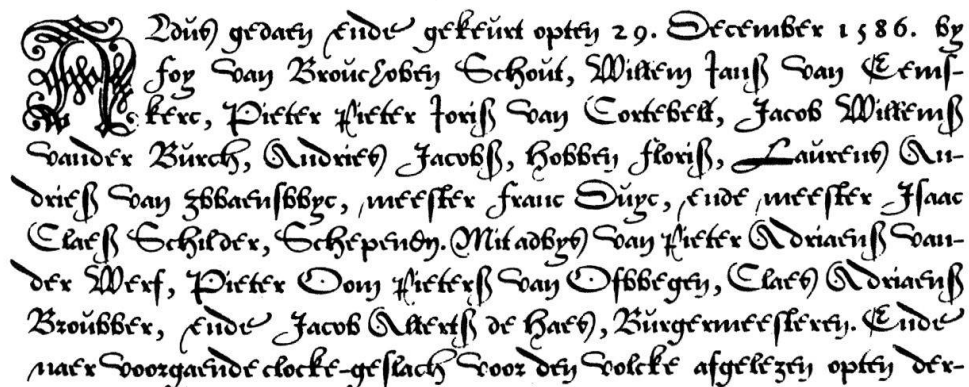 ALdus gedaen ende gekeurt opten 29. December 1586. by
Foy van Brouchoven Schout, Willem Jansz van Eems-
kerc, Pieter Pieter Jorisz van Cortevelt, Jacob Willemsz
vander Burch, Andries Jacobsz, Hobben Florisz, Laurens An-
driesz van zwaenswyc, meester Franc Duyc, ende meester Isaac
Claesz Schilder, Schepenen. Mit advys van Pieter Adriaensz van-
der Werf, Pieter Oom Pietersz van Ofwegen, Claes Adriaensz
Brouwer, ende Jacob Allertsz de Haes, Burgermeesteren. Ende
naer voorgaende clocke-geslach voor den volcke afgelezen opten der-